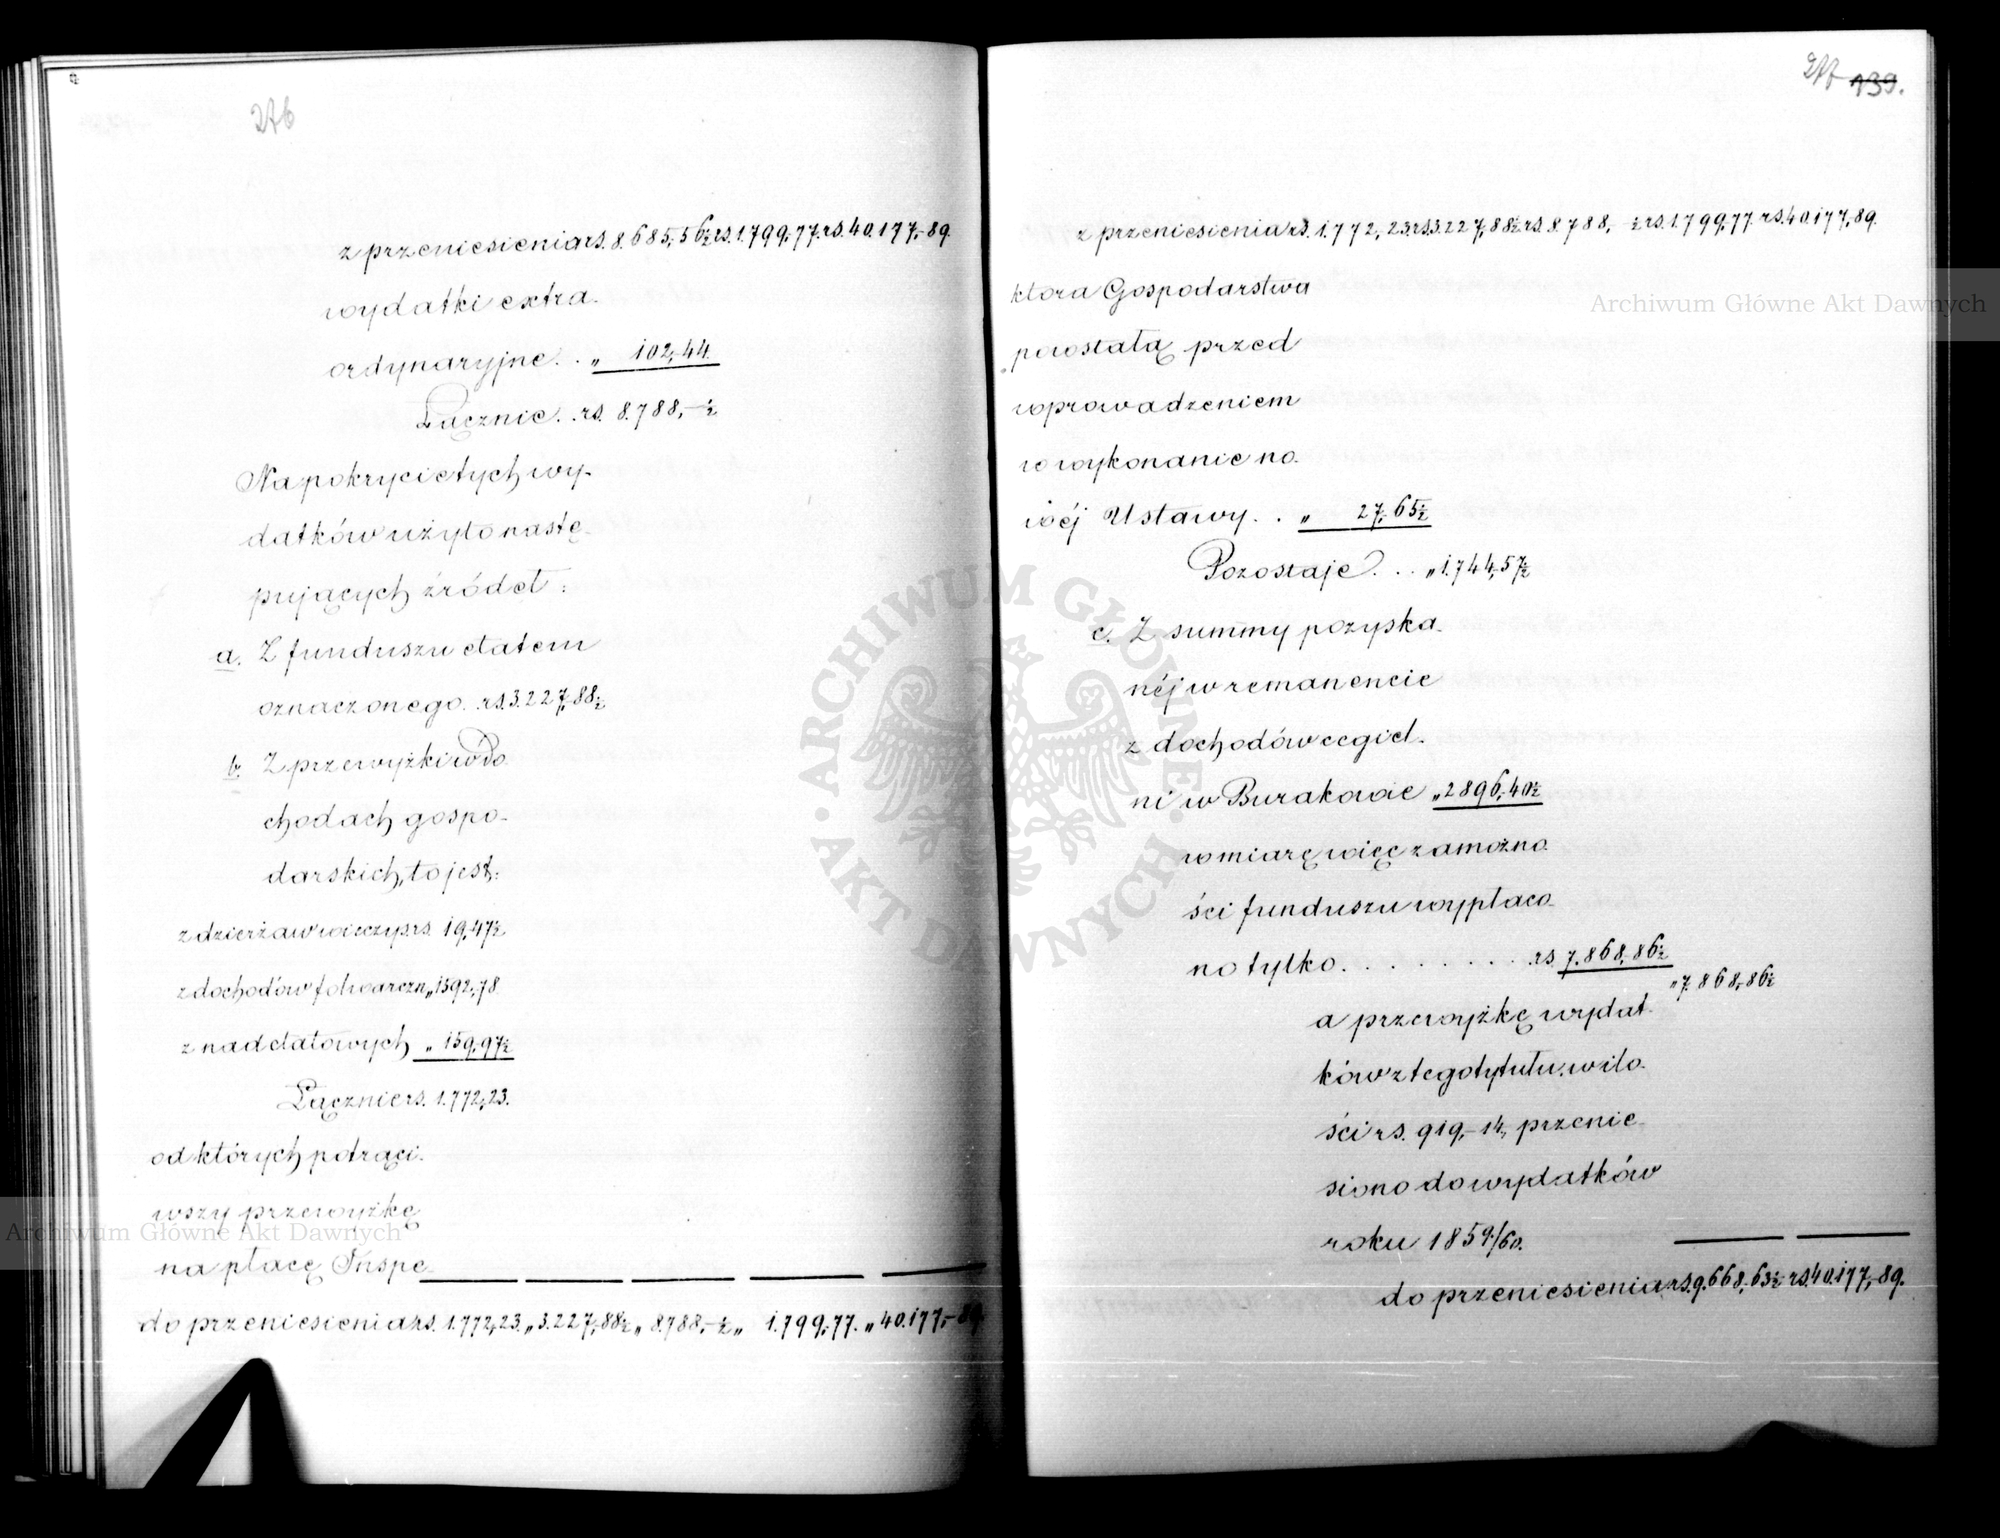 276
z przeniesienia rs. 8.685,56½ rs. 1.799,77. rs. 40.177,-89.
wydatki extra-
ordynaryjne. . „ 102,44.
Łącznie. . rs. 8.788,-½
Na pokrycie tych wy-
datków użyto nastę-
pujących źródeł:
a. Z funduszu etatem
oznaczonego. rs. 3.227,88½
b. Z przewyżki w do-
chodach gospo-
darskich, to jest:
z dzierżaw wieczys. rs. 19,47½
z dochodów folwarczn „ 1592,78
z nadetatowych „ 159,97½
Łącznie rs. 1.772,23.
od których potrąci-
wszy przewyżkę
na płacę Inspe-
do przeniesienia rs. 1.772,23. „ 3.227,88½ „ 8.788,-½ „ 1.799,-77. „ 40.177,-89.
277 139.
z przeniesienia rs. 1.772,23. rs. 3.227,88½ rs. 8.788,-½ rs. 1.799,77. rs. 40.177,89.
ktora Gospodarstwa
powstałą przed
wprowadzeniem
w wykonanie no-
wéj Ustawy. . „ 27,65½
Pozostaje. . . „ 1.744,57½
c. Z summy pozyska-
néj w remanencie
z dochodów cegiel-
ni w Burakowie „ 2896,40½
w miarę więc zamożno-
ści funduszu wypłaco-
no tylko. . . . . . . . rs. 7.868,86½
„ 7.868,-86½
a przewyżkę wydat-
ków z tego tytułu, w ilo-
ści rs. 919,-14, przenie-
siono do wydatków
roku 1859/60.
do przeniesienia rs. 9.668,63½ rs. 40.177,-89.
Archiwum Główne Akt Dawnych
Archiwum Główne Akt Dawnych
· ARCHIWUM GŁÓWNE · AKT DAWNYCH ·